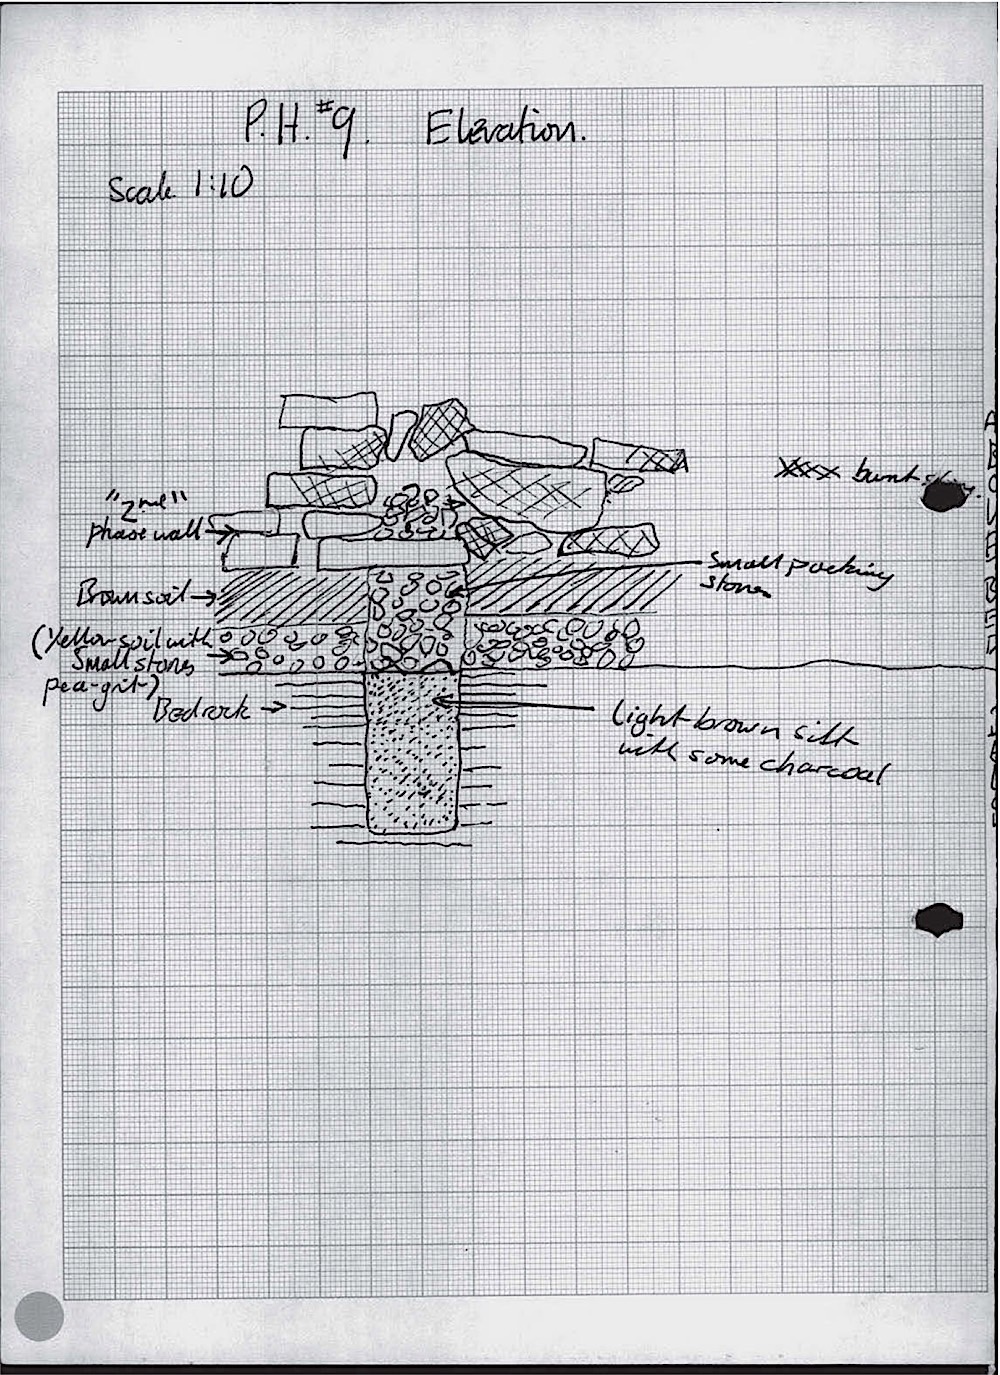 P.H.#9. Elevation.
Scale 1:10
burnt
"2nd"
phase wall
Small packing
stones
Brown soil
(Yellow soil with
Small stones
pea-grit)
Bedrock
Light brown silt
with some charcoal